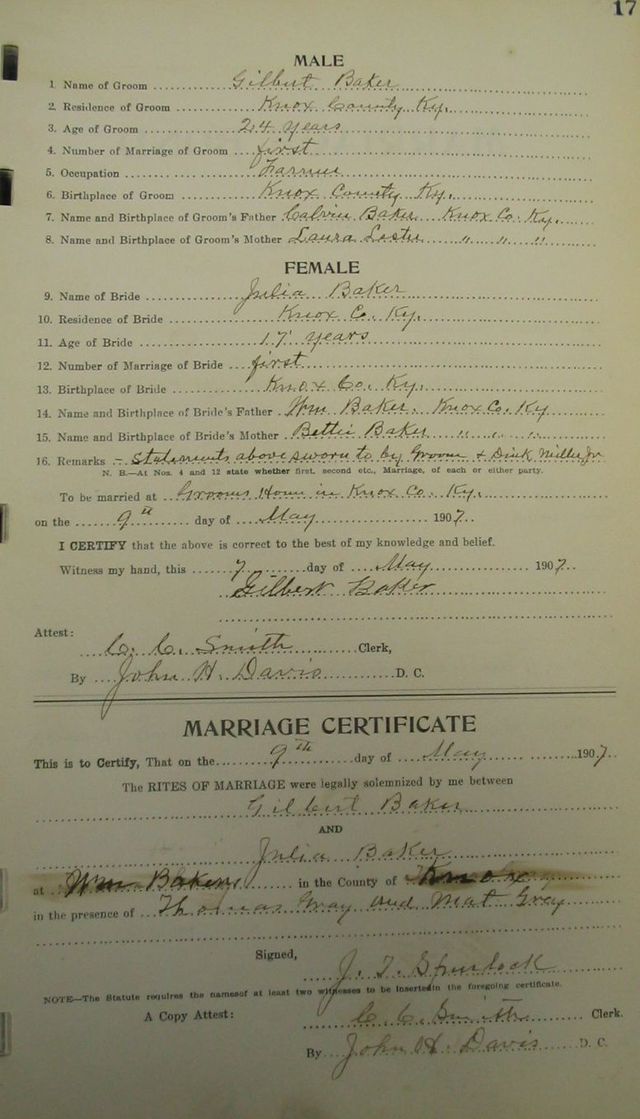 17
MALE
1. Name of Groom Gilbert Baker
2. Residence of Groom Knox County Ky.
3. Age of Groom 24 years
4. Number of Marriage of Groom first
5. Occupation Farmer
6. Birthplace of Groom Knox County Ky.
7. Name and Birthplace of Groom's Father Calvin Baker Knox Co. Ky.
8. Name and Birthplace of Groom's Mother Laura " " "
FEMALE
9. Name of Bride Julia Baker
10. Residence of Bride Knox Co. Ky.
11. Age of Bride 17 years
12. Number of Marriage of Bride first
13. Birthplace of Bride Knox Co. Ky.
14. Name and Birthplace of Bride's Father Wm Baker. Knox Co. Ky
15. Name and Birthplace of Bride's Mother Bettie Baker " " "
16. Remarks – Statements above sworn to by Groom & Dink Miller Jr
N. B.—At Nos. 4 and 12 state whether first, second etc., Marriage, of each or either party.
To be married at Grooms Home in Knox Co. Ky.
on the 9th day of May 1907.
I CERTIFY that the above is correct to the best of my knowledge and belief.
Witness my hand, this 7 day of May 1907.
Gilbert Baker
Attest:
C. C. Smith Clerk,
By John H. Davis D. C.
MARRIAGE CERTIFICATE
This is to Certify, That on the 9th day of May 1907.
The RITES OF MARRIAGE were legally solemnized by me between
Gilbert Baker
AND
Julia Baker
at Wm Bakers in the County of Knox
in the presence of Thomas and Mat Gray
Signed,
J. T. Spurlock
NOTE—The Statute requires the namesof at least two witnesses to be inserted in the foregoing certificate.
A Copy Attest: C. C. Smith Clerk.
By John H. Davis D. C.